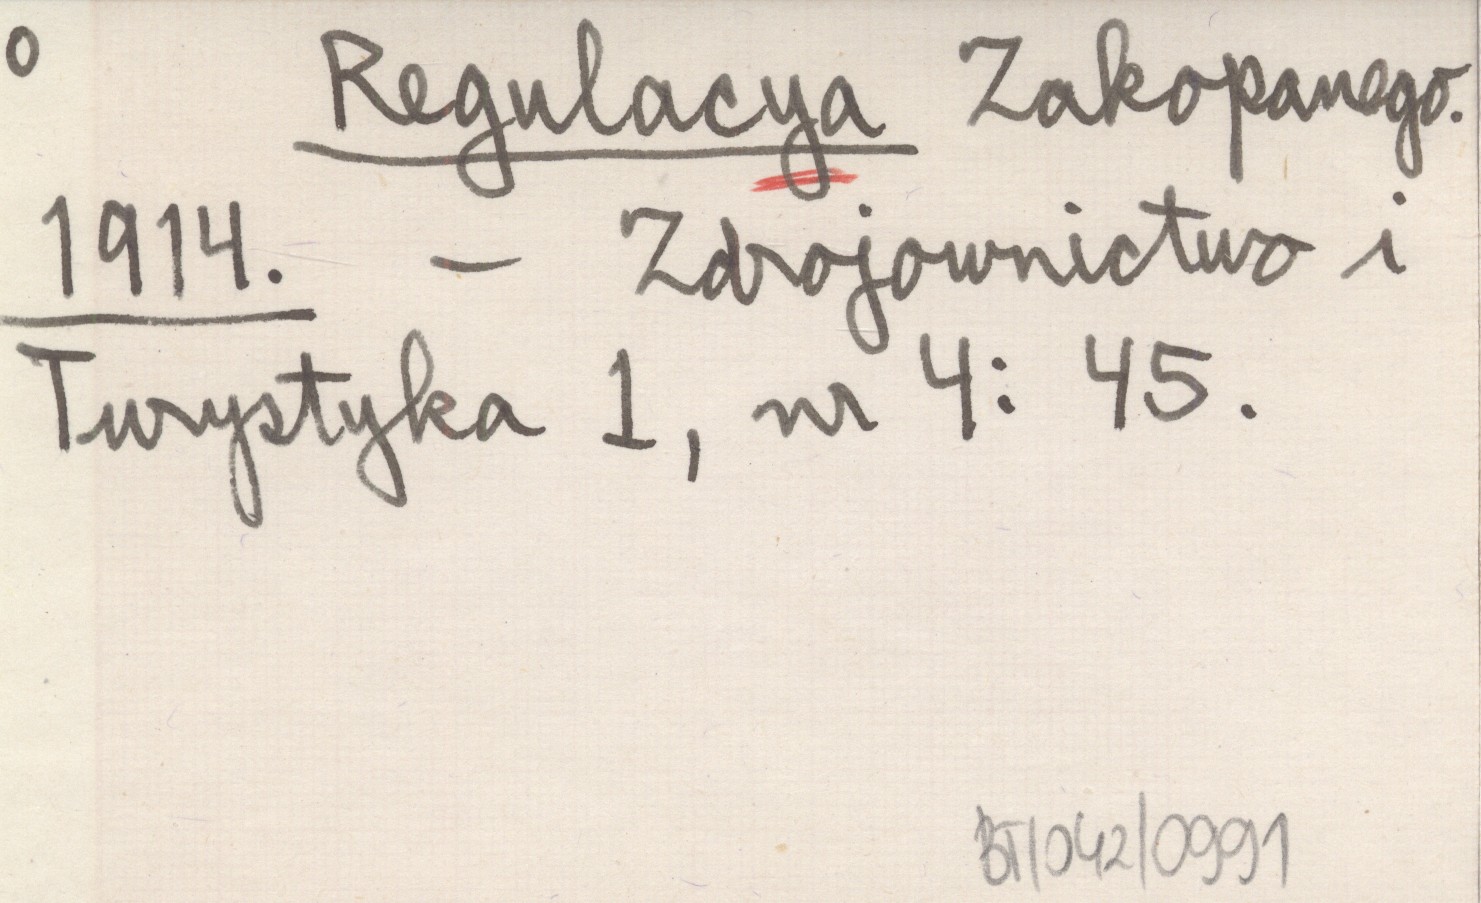 o Regulacya Zakopanego.
1914. – Zdrojownictwo i
Turystyka 1, nr 4: 45.
BT/042/0991